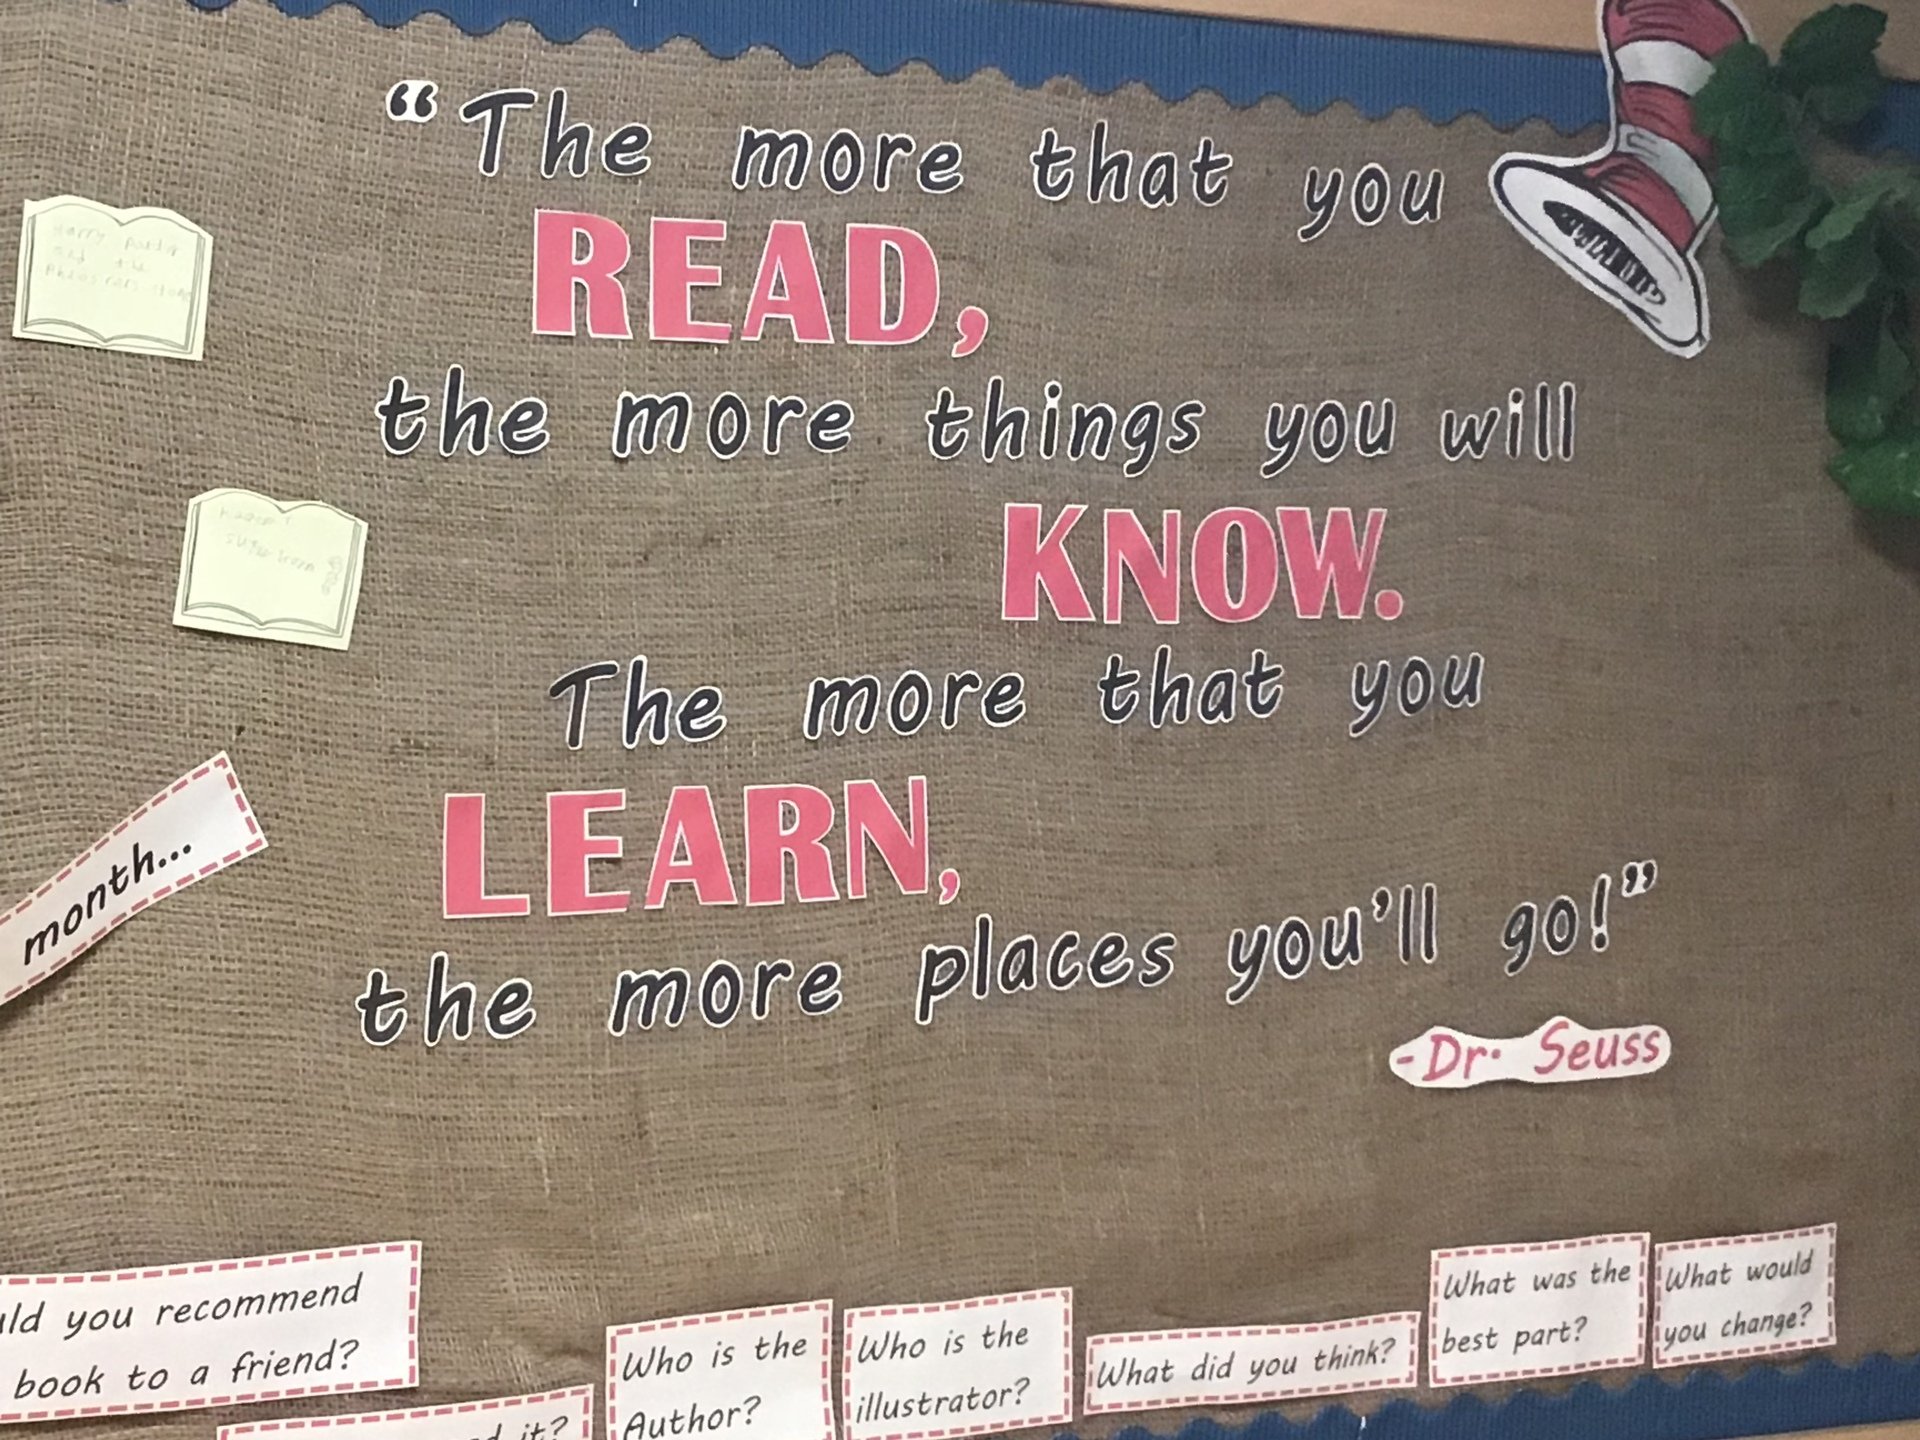 “The more that you
READ,
the more things you will
KNOW.
The more that you
LEARN,
the more places you’ll go!”
-Dr. Seuss
Harry
and the
month...
you recommend
book to a friend?
it?
Who is the
Author?
Who is the
illustrator?
What did you think?
What was the
best part?
What would
you change?